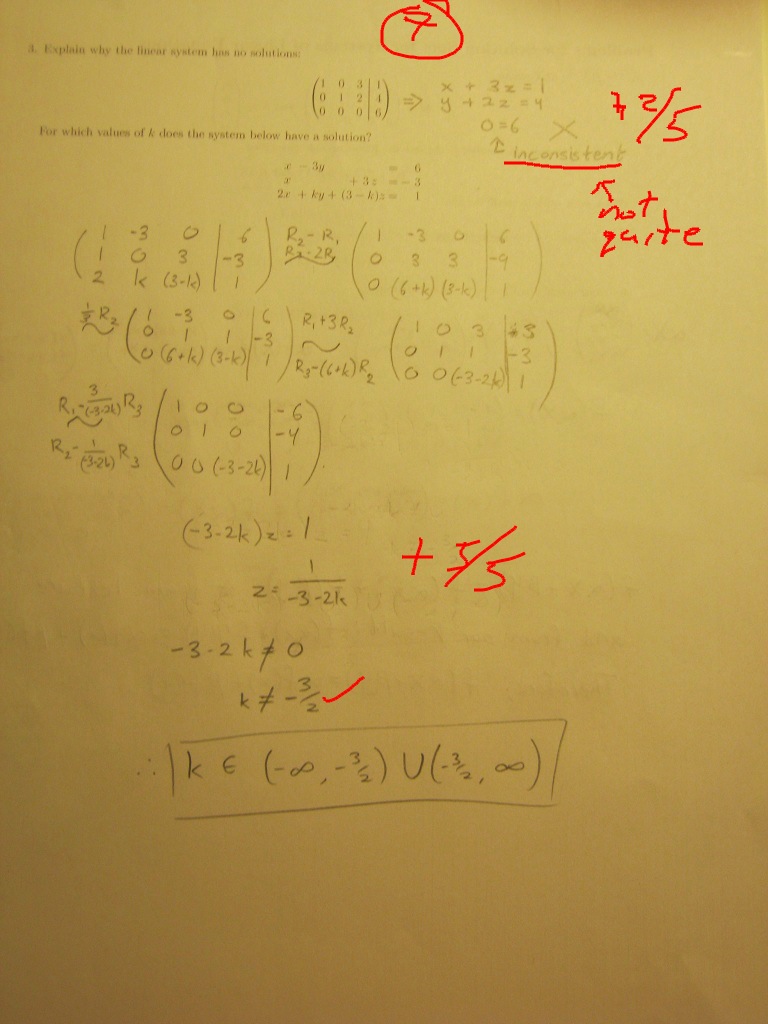 7
3. Explain why the linear system has no solutions:
( 1 0 3 | 1
0 1 2 | 4
0 0 0 | 6 ) ⇒ x + 3z = 1
y + 2z = 4
0 = 6 X
↑ inconsistent
+2/5
↖ not quite
For which values of k does the system below have a solution?
x − 3y = 6
x + 3z = −3
2x + ky + (3 − k)z = 1
( 1 -3 0 | 6
1 0 3 | -3
2 k (3-k) | 1 )
R2 - R1
R3 - 2R1
( 1 -3 0 | 6
0 3 3 | -9
0 (6+k) (3-k) | 1 )
1/3 R2
( 1 -3 0 | 6
0 1 1 | -3
0 (6+k) (3-k) | 1 )
R1+3R2
R3-(6+k)R2
( 1 0 3 | -3
0 1 1 | -3
0 0 (-3-2k) | 1 )
R1 - 3/(-3-2k) R3
R2 - 1/(-3-2k) R3
( 1 0 0 | -6
0 1 0 | -4
0 0 (-3-2k) | 1 ).
(-3-2k)z = 1
z = 1/(-3-2k)
+ 5/5
-3-2k ≠ 0
k ≠ -3/2 ✓
∴ k ∈ (-∞, -3/2) ∪ (-3/2, ∞)